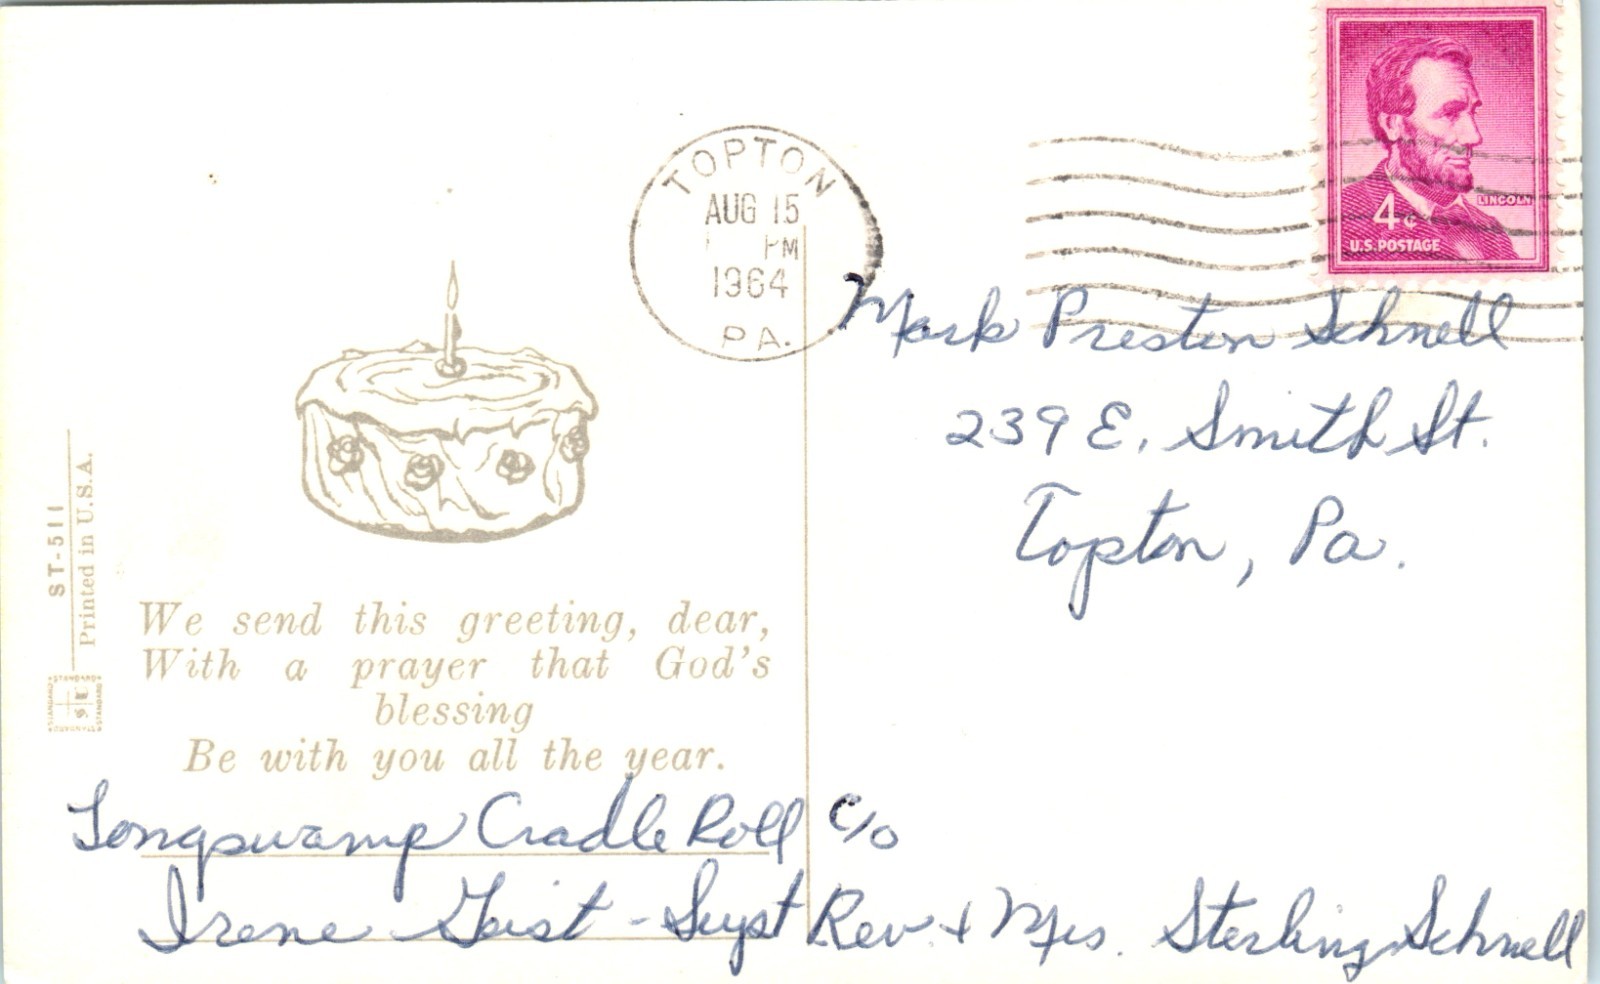 TOPTON
AUG 15
PM
1964
PA.
LINCOLN
4¢
U.S. POSTAGE
Mark Preston Schnell
239 E. Smith St.
Topton, Pa.
ST-511
Printed in U.S.A.
STANDARD
We send this greeting, dear,
With a prayer that God's
blessing
Be with you all the year.
Longswamp Cradle Roll c/o
Irene Geist - Supt Rev. + Mrs. Sterling Schnell